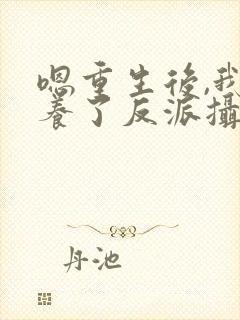 嗯重生後,我
養了反派攝
丹池